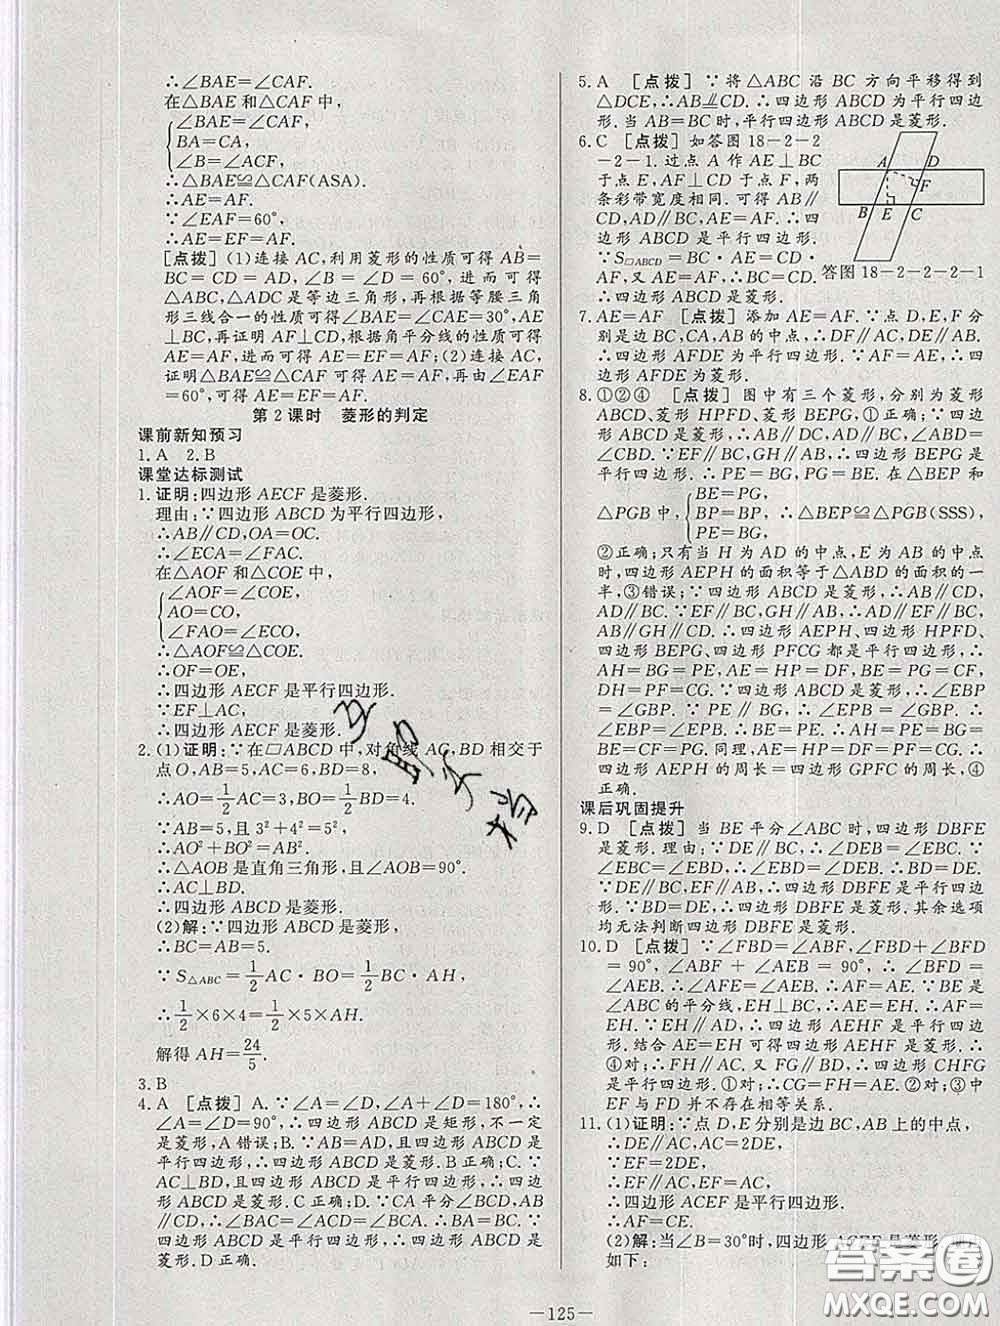 ∴∠BAE=∠CAF.
在△BAE和△CAF中,
∠BAE=∠CAF,
BA=CA,
∠B=∠ACF,
∴△BAE≌△CAF(ASA).
∴AE=AF.
∵∠EAF=60°,
∴AE=EF=AF.
[点拨] (1)连接AC,利用菱形的性质可得AB=
BC=CD=AD,∠B=∠D=60°,进而可得
△ABC,△ADC是等边三角形,再根据等腰三角
形三线合一的性质可得∠BAE=∠CAE=30°,AE
⊥BC,再证明AF⊥CD,根据角平分线的性质可得
AE=AF,进而可得AE=EF=AF;(2)连接AC,
证明△BAE≌△CAF可得AE=AF,再由∠EAF
=60°,可得AE=EF=AF.
第2课时 菱形的判定
课前新知预习
1.A 2.B
课堂达标测试
1.证明:四边形AECF是菱形.
理由:∵四边形ABCD为平行四边形,
∴AB∥CD,OA=OC.
∴∠ECA=∠FAC.
在△AOF和△COE中,
∠AOF=∠COE,
AO=CO,
∠FAO=∠ECO,
∴△AOF≌△COE.
∴OF=OE,
∴四边形AECF是平行四边形.
∵EF⊥AC,
∴四边形AECF是菱形.
2.(1)证明:∵在□ABCD中,对角线AC,BD相交于
点O,AB=5,AC=6,BD=8,
∴AO=1/2AC=3,BO=1/2BD=4.
∵AB=5,且3²+4²=5²,
∴AO²+BO²=AB².
∴△AOB是直角三角形,且∠AOB=90°.
∴AC⊥BD.
∴四边形ABCD是菱形.
(2)解:∵四边形ABCD是菱形,
∴BC=AB=5.
∵S△ABC=1/2AC·BO=1/2BC·AH,
∴1/2×6×4=1/2×5×AH.
解得AH=24/5.
3.B
4.A [点拨] A.∵∠A=∠D,∠A+∠D=180°,∴
∠A=∠D=90°,∴四边形ABCD是矩形,不一定
是菱形;A错误;B.∵AB=AD,且四边形ABCD是
平行四边形,∴四边形ABCD是菱形.B正确;C.∵
AC⊥BD,且四边形ABCD是平行四边形,∴四边
形ABCD是菱形.C正确;D.∵CA平分∠BCD,AB
∥CD,∴∠BAC=∠ACD=∠BCA.∴AB=BC.∵
四边形ABCD是平行四边形,∴四边形ABCD是
菱形.D正确.
5.A [点拨] ∵将△ABC沿BC方向平移得到
△DCE,∴AB∥CD.∴四边形ABCD为平行四边
形.当AB=BC时,平行四边形ABCD是菱形.
6.C [点拨] 如答图18-2-2
-2-1.过点A作AE⊥BC
于点E,AF⊥CD于点F,两
条彩带宽度相同.可得AB∥
CD,AD∥BC,AE=AF.∴四
边形ABCD是平行四边形.
∵S□ABCD=BC·AE=CD·
AF,又AE=AF.∴BC=CD,∴四边形ABCD是菱形.
A
D
F
B
E
C
答图18-2-2-2-1
7.AE=AF [点拨] 添加AE=AF.∵点D,E,F分
别是边BC,CA,AB的中点,∴DF∥AC,DE∥AB.
∴四边形AFDE为平行四边形.又AE=AF,∴四
边形AFDE为菱形.
8.①②④ [点拨] 图中有三个菱形,分别为菱形
ABCD、菱形HPFD、菱形BEPG,①正确;∵四边
形ABCD是菱形,∴AB∥DC,AD∥BC,∠ABD=
∠CBD.∵EF∥BC,GH∥AB.∴四边形BEPG是
平行四边形.∴PE=BG,PG=BE.在△BEP和
△PGB中,
BE=PG,
BP=BP,
PE=BG,
∴△BEP≌△PGB(SSS),
②正确;只有当H为AD的中点,E为AB的中点
时,四边形AEPH的面积等于△ABD的面积的一
半,③错误;∵四边形ABCD是菱形,∴AB∥CD,
AD∥BC.∵EF∥BC,GH∥AB,∴AD∥EF∥BC,
AB∥GH∥CD.∴四边形AEPH、四边形HPFD、
四边形BEPG、四边形PFCG都是平行四边形.∴
AH=BG=PE,AE=HP=DF,EB=PG=CF,
GC=PF=HD.∵四边形ABCD是菱形,∴∠EBP
=∠GBP.∵PE∥BG,∴∠EPB=∠GBP.∴
∠EBP=∠EPB.∴EB=PE.∵PE=AH,BE=
CF,∴AH=PG=CF.同理,AE=HP=DF=PF=
GC.∴四边形AEPH的周长=四边形GPFC的周长,④
正确.
课后巩固提升
9.D [点拨] 当BE平分∠ABC时,四边形DBFE
是菱形.理由:∵DE∥BC,∴∠DEB=∠EBC.∵
∠EBC=∠EBD,∴∠EBD=∠DEB.∴BD=DE.
∵DE∥BC,EF∥AB,∴四边形DBFE是平行四边
形.∵BD=DE,∴四边形DBFE是菱形.其余选项
均无法判断四边形DBFE是菱形.
10.D [点拨] ∵∠FBD=∠ABF,∠FBD+∠BFD
=90°,∠ABF+∠AEB=90°,∴∠BFD=
∠AEB.∴∠AFE=∠AEB.∴AF=AE.∵BE是
∠ABC的平分线,EH⊥BC,∴AE=EH.∴AF=
EH.∵EH∥AD,∴四边形AEHF是平行四边
形.结合AE=EH可得四边形AEHF是菱形.∴
④对;∵FH∥AC,又FG∥BD,∴四边形CHFG
是平行四边形.①对;∴CG=FH=AF.②对;③中
EF与FD并不存在相等关系.
11.(1)证明:∵点D,E分别是边BC,AB上的中点,
∴DE∥AC,AC=2DE,
∵EF=2DE,
∴EF∥AC,EF=AC,
∴四边形ACEF是平行四边形.
∴AF=CE.
(2)解:当∠B=30°时,四边形ACEF是菱形,
如下:
—125—
答案圈
MXQE.COM